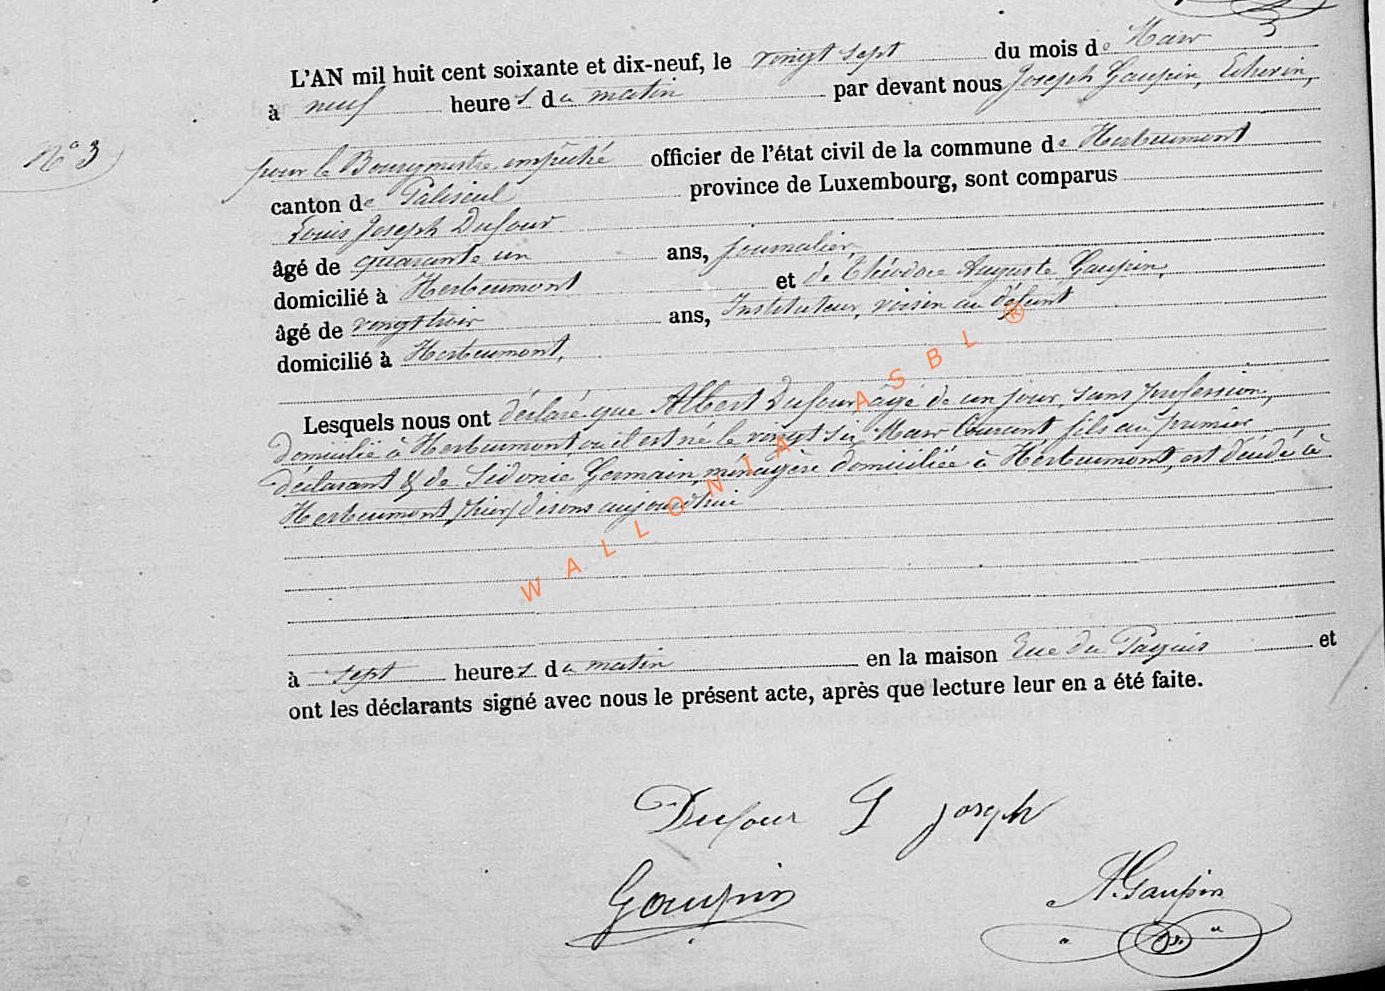 L'AN mil huit cent soixante et dix-neuf, le vingt sept du mois de Mars
à neuf heures du matin par devant nous Joseph Gaupin, Echevin,
N° 3
pour le Bourgmestre empêché officier de l'état civil de la commune de Herbeumont
canton de Paliseul province de Luxembourg, sont comparus
Louis Joseph Dufour
âgé de quarante un ans, journalier,
domicilié à Herbeumont et de Théodore Auguste Gaupin,
âgé de vingt trois ans, Instituteur, voisin au défunt
domicilié à Herbeumont,
Lesquels nous ont déclaré que Albert Dufour, âgé de un jour, sans profession,
domicilié à Herbeumont, où il est né le vingt six Mars courant fils au premier
déclarant & de Sidonie Germain, ménagère domiciliée à Herbeumont, est décédé à
Herbeumont, hier, disons aujourd'hui
à sept heures du matin en la maison Rue du Paquis et
ont les déclarants signé avec nous le présent acte, après que lecture leur en a été faite.
Dufour L joseph
Gaupin A. Gaupin
WALLONIA ASBL ®